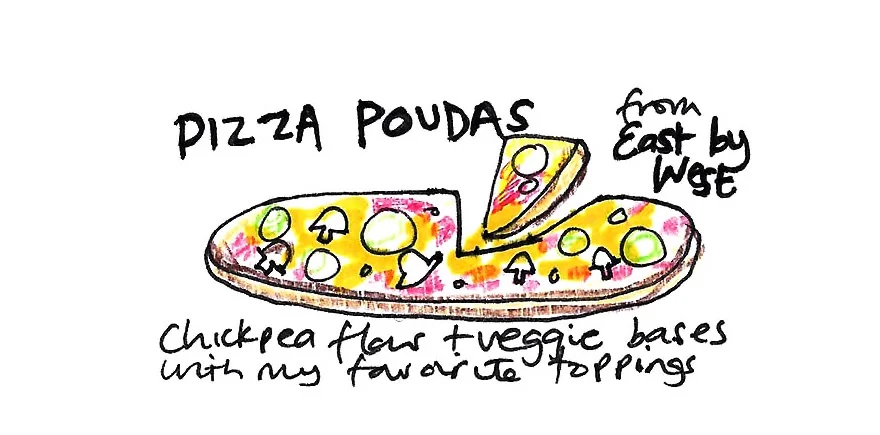 PIZZA POUDAS
from
East by
West
Chickpea flour + veggie bases
with my favourite toppings